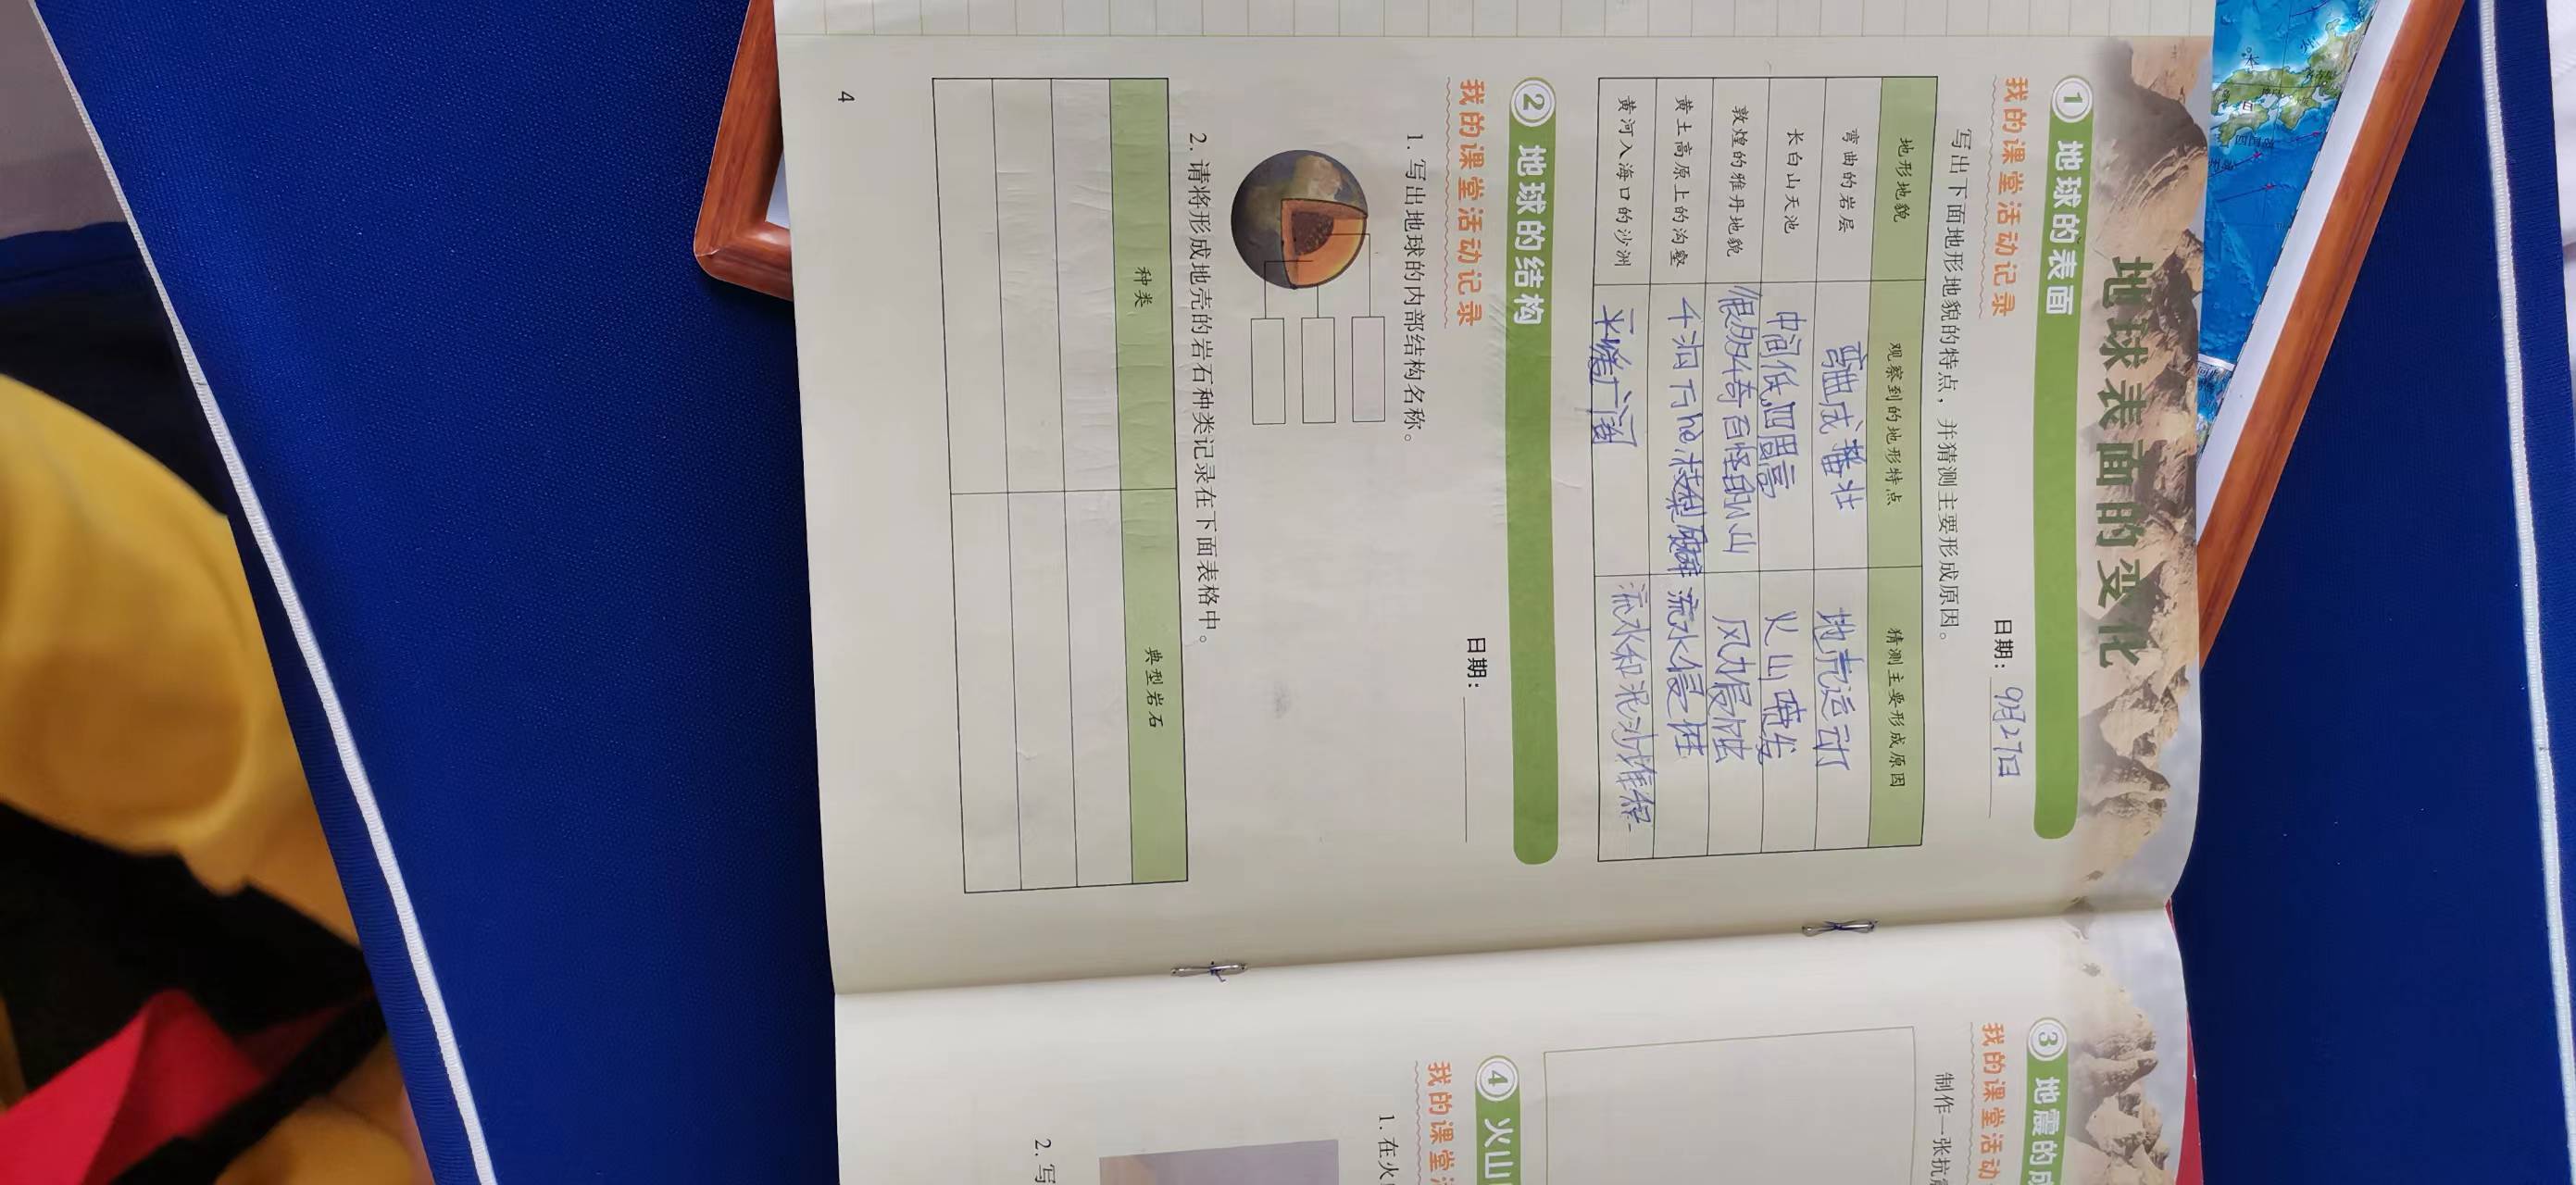 地球表面的变化
1 地球的表面
我的课堂活动记录
日期：9月27日
写出下面地形地貌的特点，并猜测主要形成原因。
地形地貌 观察到的地形特点 猜测主要形成原因
弯曲的岩层 弯曲成 壮 地壳运动
长白山天池 中间低,四周高 火山喷发
敦煌的雅丹地貌 很多奇百怪的小山 风力侵蚀
黄土高原上的沟壑 流水侵
黄河入海口的沙洲 平 广阔 流水和泥沙堆积
2 地球的结构
我的课堂活动记录
日期：
1. 写出地球的内部结构名称。
2. 请将形成地壳的岩石种类记录在下面表格中。
种类 典型岩石
4
3 地震的成
我的课堂活动
制作一张抗震
4 火山
我的课堂活
1. 在火
2. 写